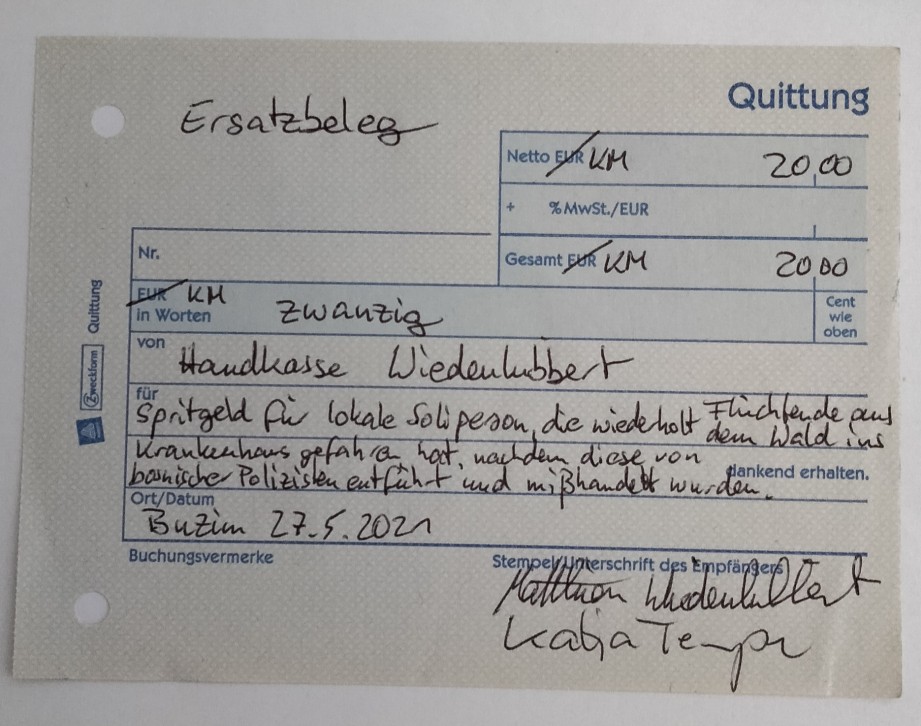 Quittung
Ersatzbeleg
Netto EUR KM 20,00
+ % MwSt./EUR
Nr.
Gesamt EUR KM 20,00
EUR KM
in Worten zwanzig
Cent
wie
oben
von
Handkasse Wiedenlübbert
für
Spritgeld für lokale Soliperson, die wiederholt Flüchtende aus
dem Wald ins
Krankenhaus gefahren hat, nachdem diese von
bosnischer Polizisten entführt und mißhandelt wurden.
dankend erhalten.
Ort/Datum
Buzim 27.5.2021
Buchungsvermerke
Stempel/Unterschrift des Empfängers
Wiedenlübbert
Katja
Zweckform Quittung